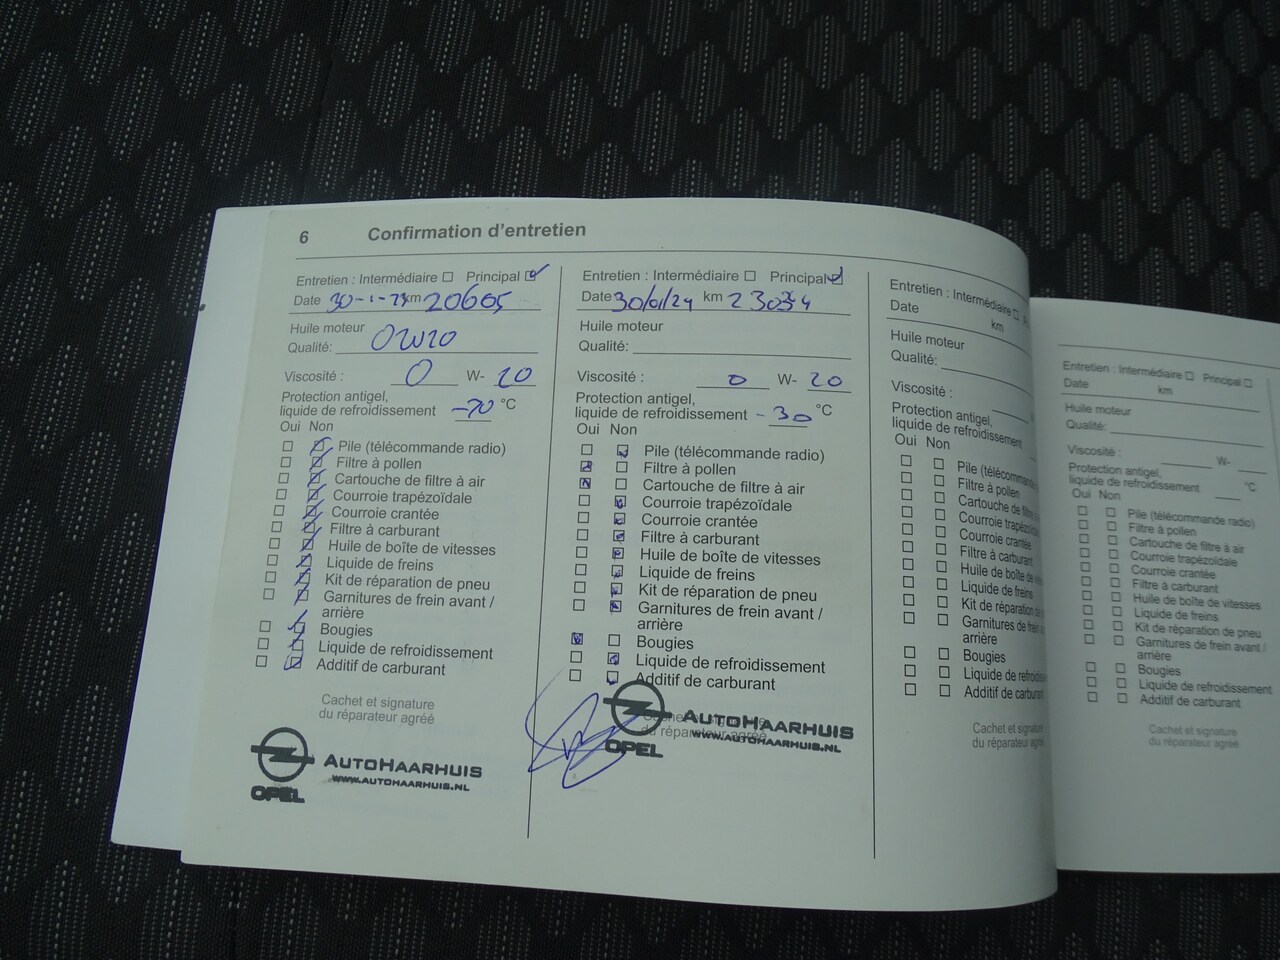 6 Confirmation d'entretien
Entretien : Intermédiaire Principal
Date 30-1-23 km 20605
Huile moteur
Qualité: 0W20
Viscosité : 0 W- 20
Protection antigel,
liquide de refroidissement °C
Oui Non
Pile (télécommande radio)
Filtre à pollen
Cartouche de filtre à air
Courroie trapézoïdale
Courroie crantée
Filtre à carburant
Huile de boîte de vitesses
Liquide de freins
Kit de réparation de pneu
Garnitures de frein avant /
arrière
Bougies
Liquide de refroidissement
Additif de carburant
Cachet et signature
du réparateur agréé
AUTOHAARHUIS
WWW.AUTOHAARHUIS.NL
OPEL
Entretien : Intermédiaire Principal
Date 30/01/24 km
Huile moteur
Qualité:
Viscosité : 0 W- 20
Protection antigel,
liquide de refroidissement -30 °C
Oui Non
Pile (télécommande radio)
Filtre à pollen
Cartouche de filtre à air
Courroie trapézoïdale
Courroie crantée
Filtre à carburant
Huile de boîte de vitesses
Liquide de freins
Kit de réparation de pneu
Garnitures de frein avant /
arrière
Bougies
Liquide de refroidissement
Additif de carburant
du réparateur agréé
AUTOHAARHUIS
WWW.AUTOHAARHUIS.NL
OPEL
Entretien : Intermédiaire
Date km
Huile moteur
Qualité:
Viscosité :
Protection antigel,
liquide de refroidissement
Oui Non
Pile (télécommande
Filtre à pollen
Cartouche de
Courroie
Courroie crantée
Filtre à carburant
Huile de boîte de
Liquide de freins
Kit de réparation
Garnitures de frein
arrière
Bougies
Liquide de
Additif de
Cachet et signature
du réparateur agréé
Entretien : Intermédiaire Principal
Date km
Huile moteur
Qualité:
Viscosité : W-
Protection antigel,
liquide de refroidissement °C
Oui Non
Pile (télécommande radio)
Filtre à pollen
Cartouche de filtre à air
Courroie trapézoïdale
Courroie crantée
Filtre à carburant
Huile de boîte de vitesses
Liquide de freins
Kit de réparation de pneu
Garnitures de frein avant /
arrière
Bougies
Liquide de refroidissement
Additif de carburant
Cachet et signature
du réparateur agréé